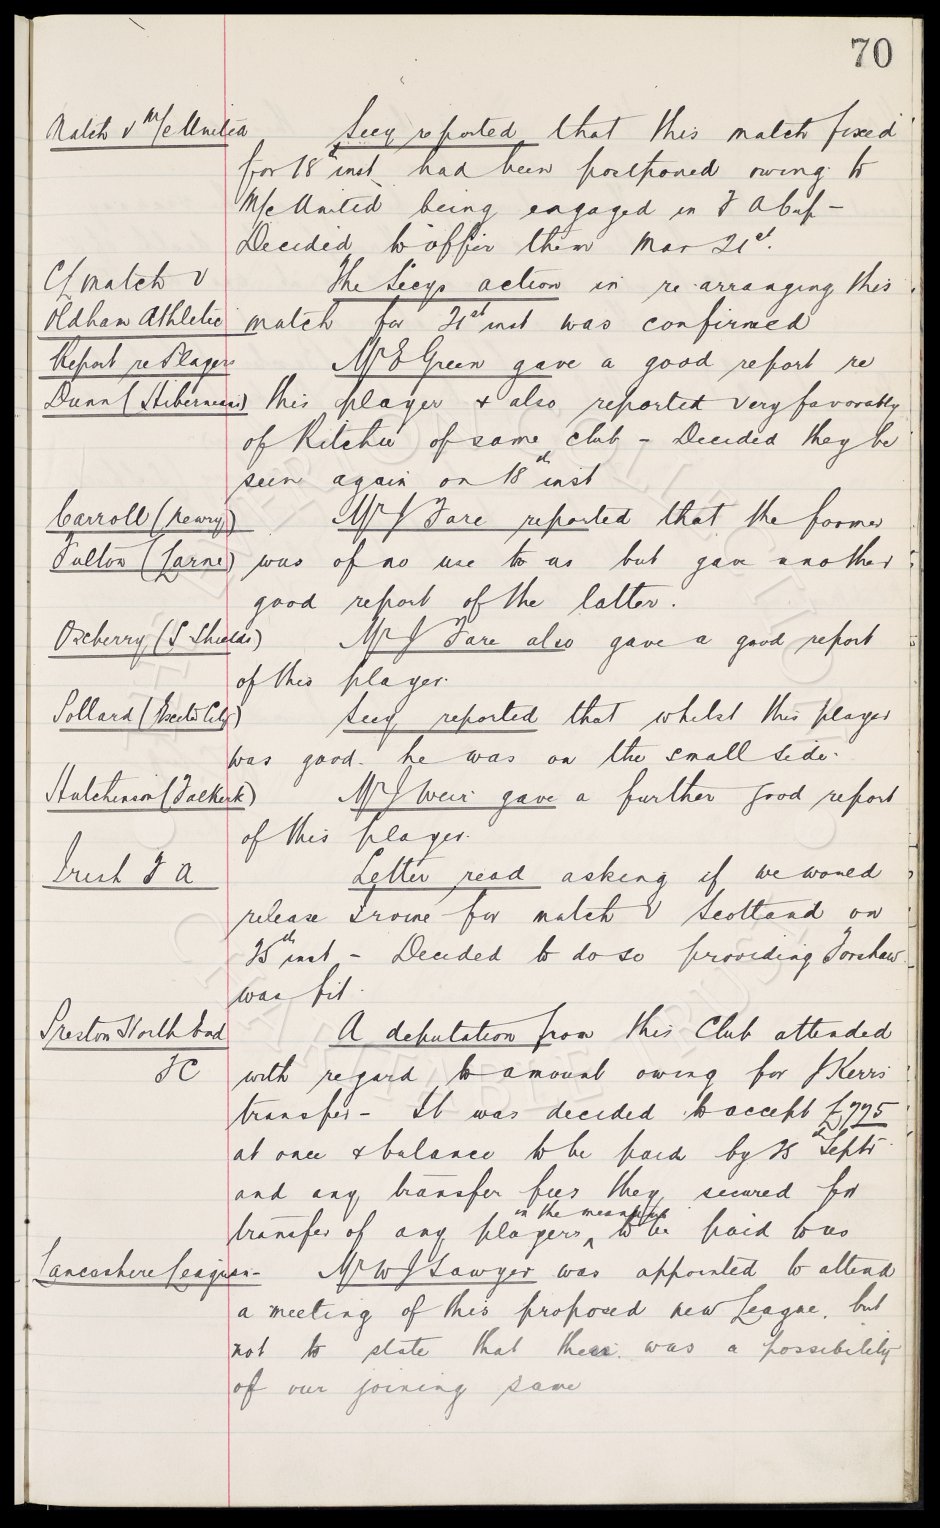 70
Match v M/c United Secy reported that this match fixed
for 18th inst had been postponed owing to
M/c United being engaged in F A Cup -
Decided to offer them Mar 21st.
CL match v The Secys action in re-arranging this
Oldham Athletic match for 21st inst was confirmed
Report re Players Mr E Green gave a good report re
Dunn (Hibernians) this player & also reported very favorably
of Ritchie of same club - Decided they be
seen again on 18th inst
Carroll (Newry) Mr J Fare reported that the former
Fulton (Larne) was of no use to us but gave another
good report of the latter.
Oxberry (S Shields) Mr J Fare also gave a good report
of this player.
Pollard (Exeter City) Secy reported that whilst this player
was good he was on the small side.
Hutchinson (Falkirk) Mr J Weir gave a further good report
of this player.
Irish F A Letter read asking if we would
release Irvine for match v Scotland on
25th inst - Decided to do so providing Forshaw
was fit.
Preston North End A deputation from this Club attended
FC with regard to amount owing for J Kerrs
transfer - It was decided to accept £775
at once & balance to be paid by 25th Septr
and any transfer fees they secured for
in the meantime
transfer of any players ^ to be paid to us
Lancashire League - Mr W J Sawyer was appointed to attend
a meeting of this proposed new League, but
not to state that there was a possibility
of our joining same
CHARITABLE TRUST